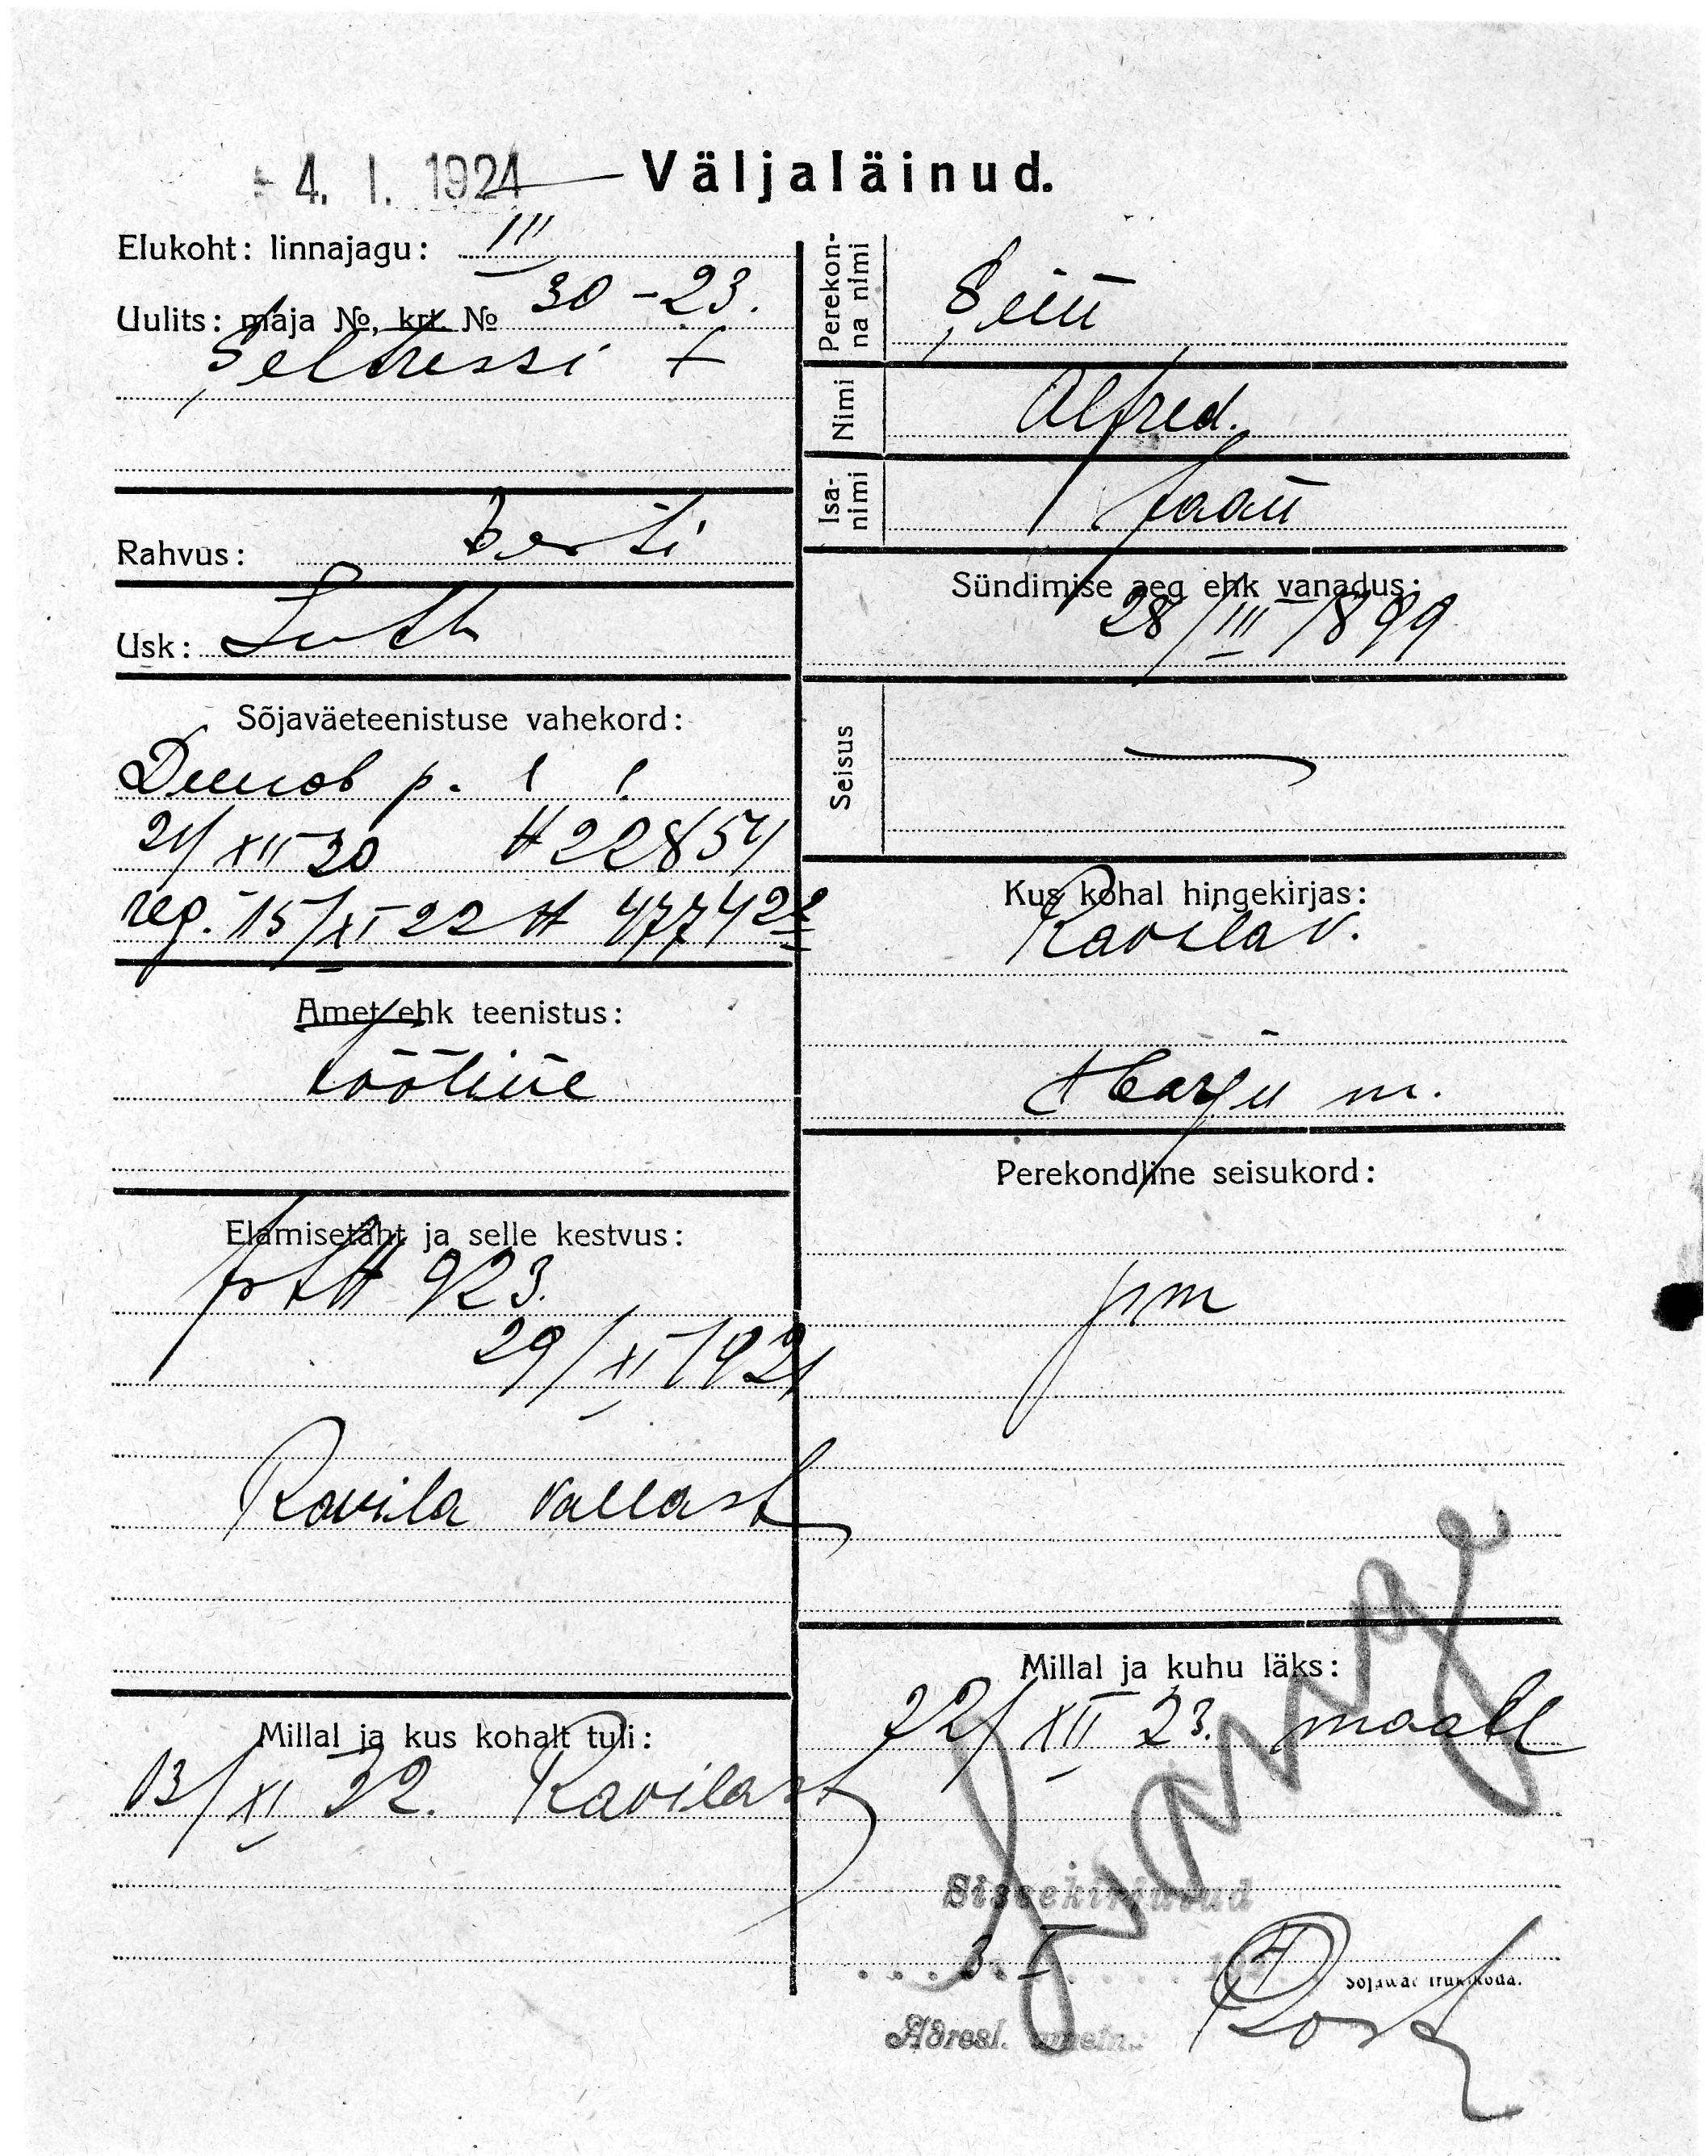 - 4. I. 1924 Väljaläinud.
Elukoht: linnajagu: III
Uulits: maja №, krt. № 30 - 23.
Rahvus: Eesti
Usk: Luth
Sõjaväeteenistuse vahekord:
Demob p. l l.
21/XII 20 № 22854
reg. 15/XI 22 № 47742
Amet ehk teenistus:
tööline
Elamisetäht ja selle kestvus:
№ 923.
29/XI 1921
Ravila vallast
Millal ja kus kohalt tuli:
13/XI 22. Ravilast
Perekonna nimi
Nimi Alfred.
Isanimi Jaan
Sündimise aeg ehk vanadus:
28/III 1899
Seisus —
Kus kohal hingekirjas:
Ravila v.
Harju m.
Perekondline seisukord:
Millal ja kuhu läks:
22/XII 23. maale
Sissekirjutud
3. I
Sõjaväe trükikoda.
Adresl. ametn.